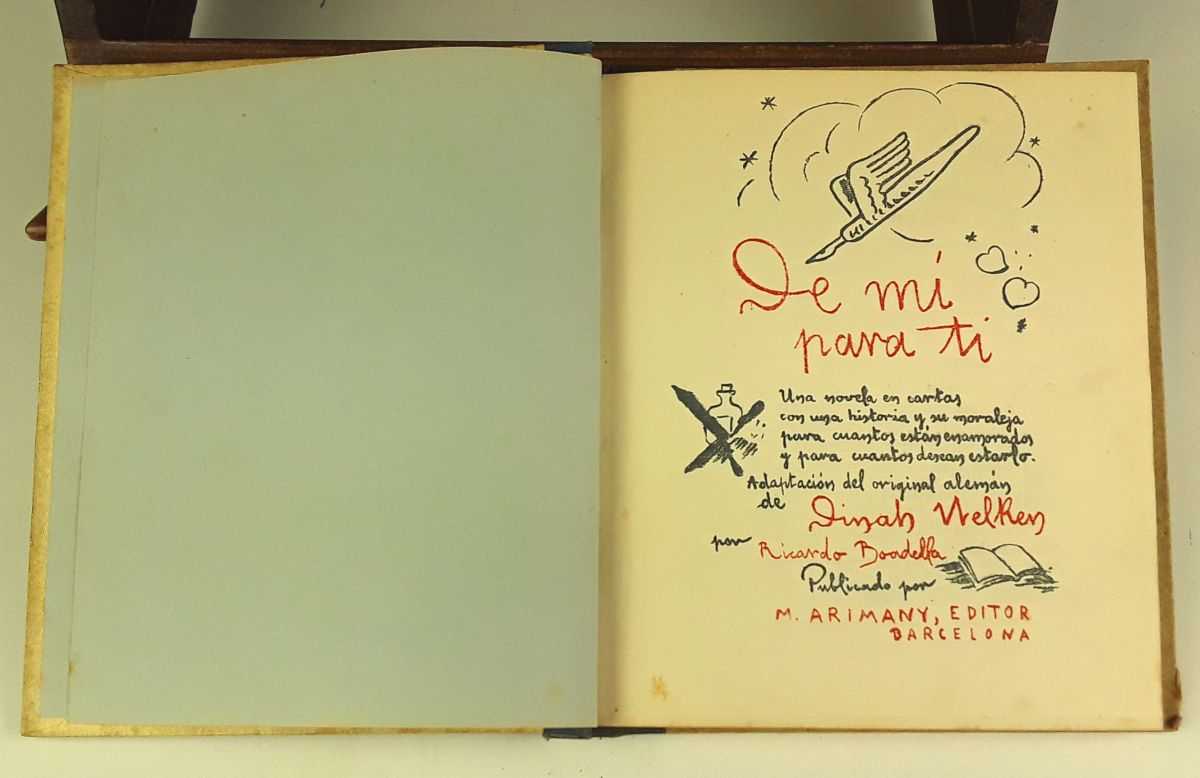 De mí
para ti
Una novela en cartas
con una historia y su moraleja
para cuantos están enamorados
y para cuantos desean estarlo.
Adaptación del original alemán
de
Dinah Nelken
por
Ricardo Boadella
Publicado por
M. ARIMANY, EDITOR
BARCELONA